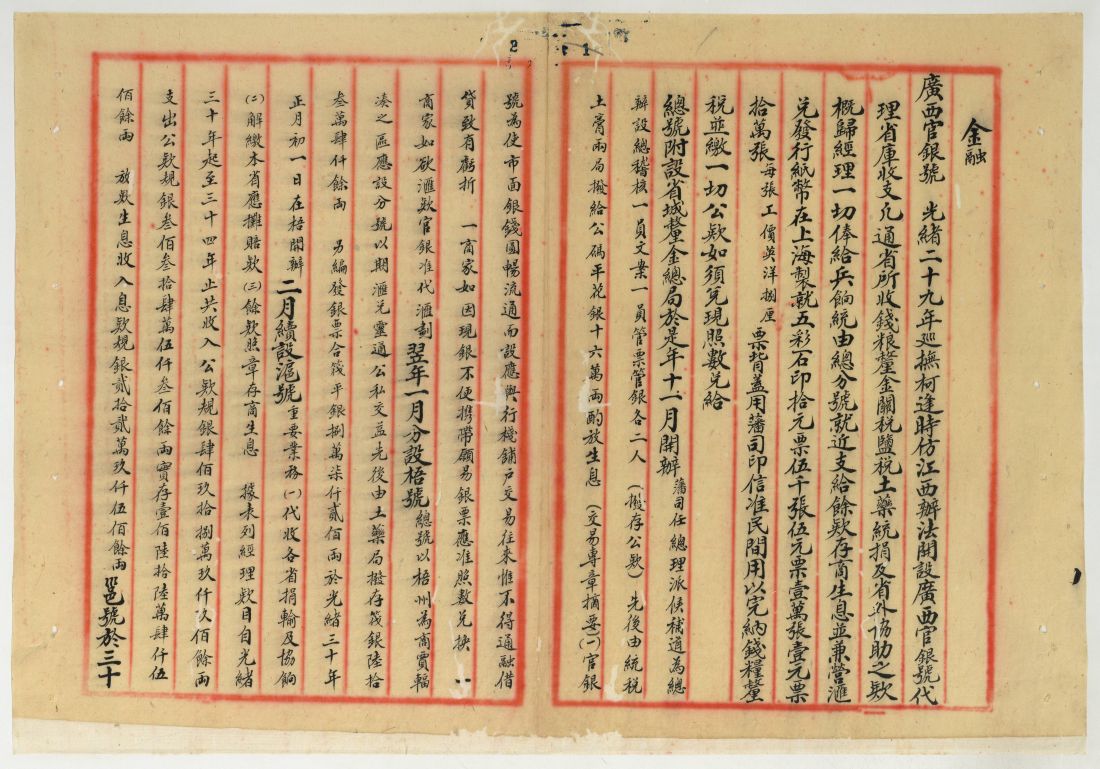 金融
廣西官銀號　光緒二十九年巡撫柯逢時仿江西辦法開設廣西官銀號代
理省庫收支凡通省所收錢粮釐金關税鹽税土藥統捐及省外協助之欵
概歸經理一切俸給兵餉統由總分號就近支給餘欵存商生息並兼營滙
兑發行紙幣在上海製就五彩石印拾元票伍千張伍元票壹萬張壹元票
拾萬張每張工價英洋捌厘　票背蓋用藩司印信准民間用以完納錢糧釐
税並繳一切公欵如須兑現照數兑給
總號附設省城釐金總局於是年十一月開辦　藩司任總理派候補道為總
辦設總稽核一員文案一員管票管銀各二人　（撥存公欵）先後由統税
土膏兩局撥給公碼平花銀十六萬兩酌放生息　（交易專章摘要）㈠官銀
號為使市面銀錢圓暢流通而設應與行棧舖户交易往来惟不得通融借
貸致有虧折　一商家如因現銀不便携帶願易銀票應准照数兑换　一
商家如欲滙欵官銀准代滙劃　翌年一月分設梧號　總號以梧州為商賈輻
湊之區應設分號以期滙兑靈通公私交益先後由土藥局撥存筏銀陸拾
叁萬肆仟餘兩　另編發銀票合筏平銀捌萬柒仟貳佰兩於光緒三十年
正月初一日在梧開辦　二月續設滬號　重要業務㈠代收各省捐輸及協餉
㈡解繳本省應攤賠欵㈢餘欵照章存商生息　據表列經理欵目自光緒
三十年起至三十四年止共收入公欵規銀肆佰玖拾捌萬玖仟玖佰餘兩
支出公欵規銀叁佰叁拾肆萬伍仟叁佰餘兩實存壹佰陸拾陸萬肆仟伍
佰餘兩　放欵生息收入息欵規銀貳拾貳萬玖仟伍佰餘兩　邕號於三十
1
2